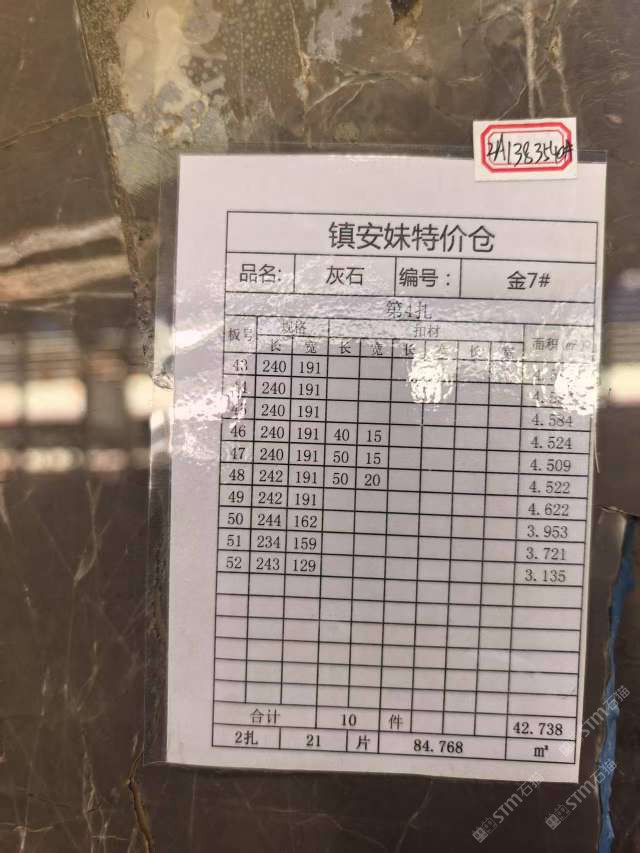 镇安妹特价仓
品名: 灰石 编号: 金7#
第4扎
板号 规格 扣材 面积
长 宽 长 宽 长 宽 长 宽
43 240 191
44 240 191
45 240 191 4.584
46 240 191 40 15 4.524
47 240 191 50 15 4.509
48 242 191 50 20 4.522
49 242 191 4.622
50 244 162 3.953
51 234 159 3.721
52 243 129 3.135
合计 10 件 42.738
2扎 21 片 84.768 m²
STM石猫
STM石猫